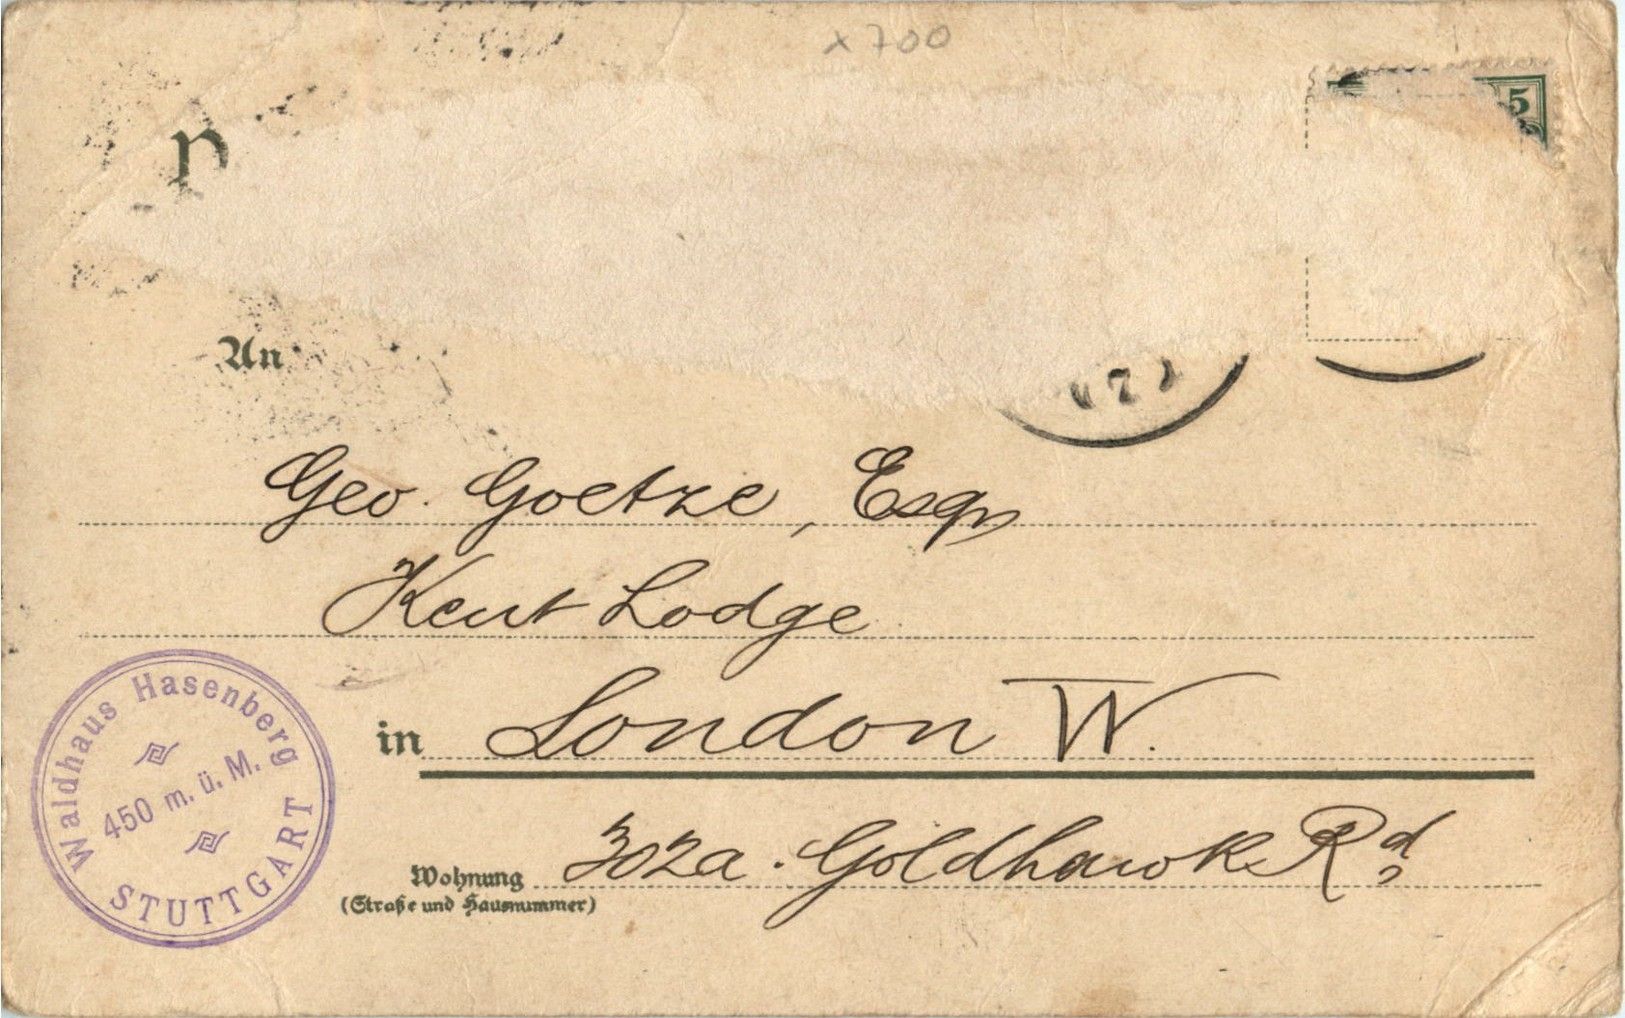 x 700
5
P
An
7
Geo. Goetze, Esqr
Kent Lodge
in London W.
Wohnung 302a. Goldhawk Rd,
(Straße und Hausnummer)
Waldhaus Hasenberg
450 m. ü. M.
STUTTGART